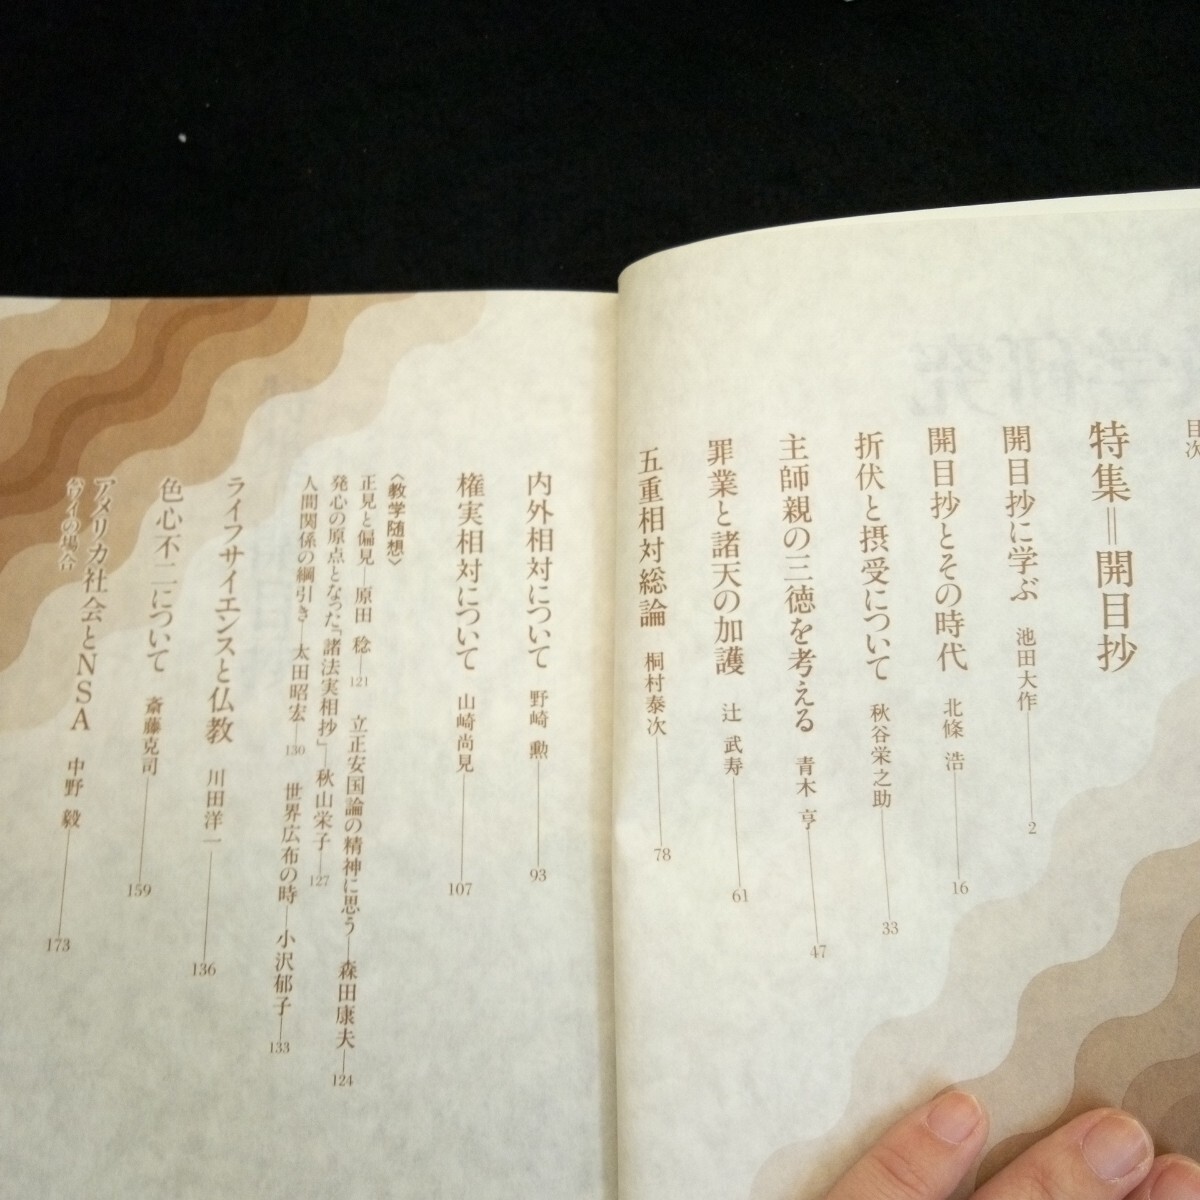 目次
特集=開目抄
開目抄に学ぶ 池田大作 2
開目抄とその時代 北條 浩 16
折伏と摂受について 秋谷栄之助 33
主師親の三徳を考える 青木 亨 47
罪業と諸天の加護 辻 武寿 61
五重相対総論 桐村泰次 78
内外相対について 野崎 勲 93
権実相対について 山崎尚見 107
〈教学随想〉
正見と偏見 原田 稔 121 立正安国論の精神に思う 森田康夫 124
発心の原点となった「諸法実相抄」 秋山栄子 127
人間関係の綱引き 太田昭宏 130 世界広布の時 小沢郁子 133
ライフサイエンスと仏教 川田洋一 136
色心不二について 斎藤克司 159
アメリカ社会とNSA 中野 毅 173
(ハワイの場合)